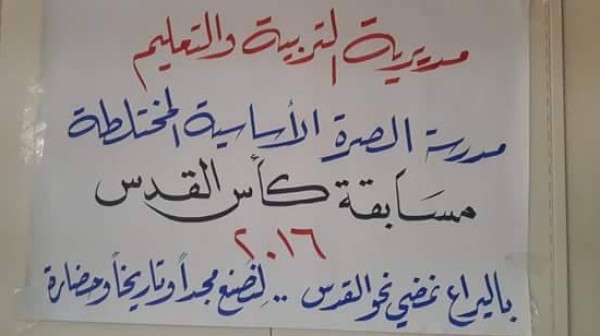 مديرية التربية والتعليم
مدرسة الصرة الأساسية المختلطة
مسابقة كأس القدس
٢٠١٦
باليراع نمضي نحو القدس .. لِنصنع مجداً وتاريخاً وحضارة